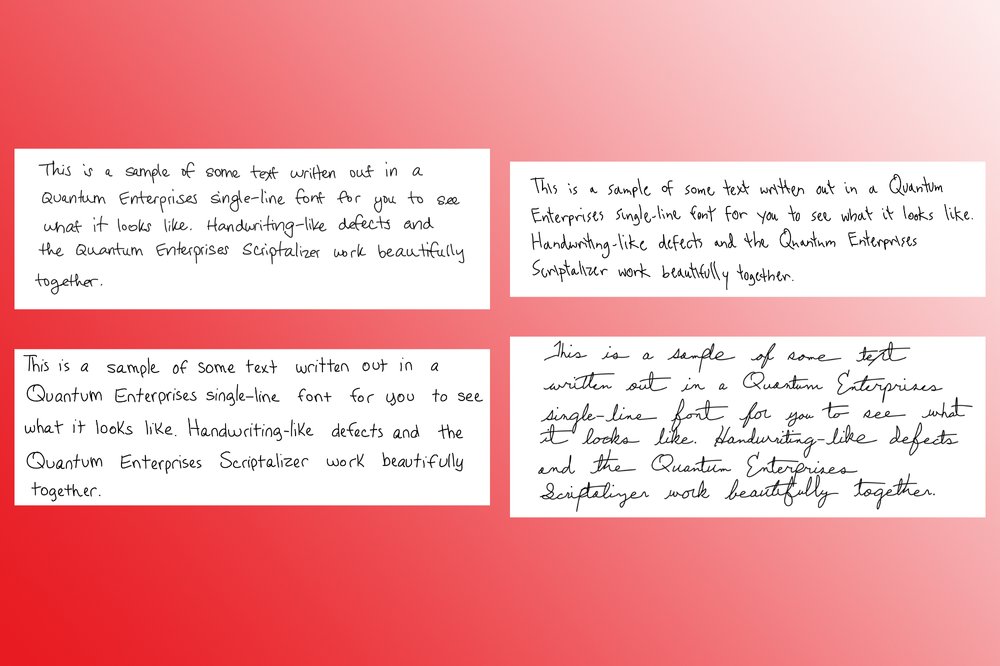 This is a sample of some text written out in a
Quantum Enterprises single-line font for you to see
what it looks like. Handwriting-like defects and
the Quantum Enterprises Scriptalizer work beautifully
together.
This is a sample of some text written out in a Quantum
Enterprises single-line font for you to see what it looks like.
Handwriting-like defects and the Quantum Enterprises
Scriptalizer work beautifully together.
This is a sample of some text written out in a
Quantum Enterprises single-line font for you to see
what it looks like. Handwriting-like defects and the
Quantum Enterprises Scriptalizer work beautifully
together.
This is a sample of some text
written out in a Quantum Enterprises
single-line font for you to see what
it looks like. Handwriting-like defects
and the Quantum Enterprises
Scriptalizer work beautifully together.